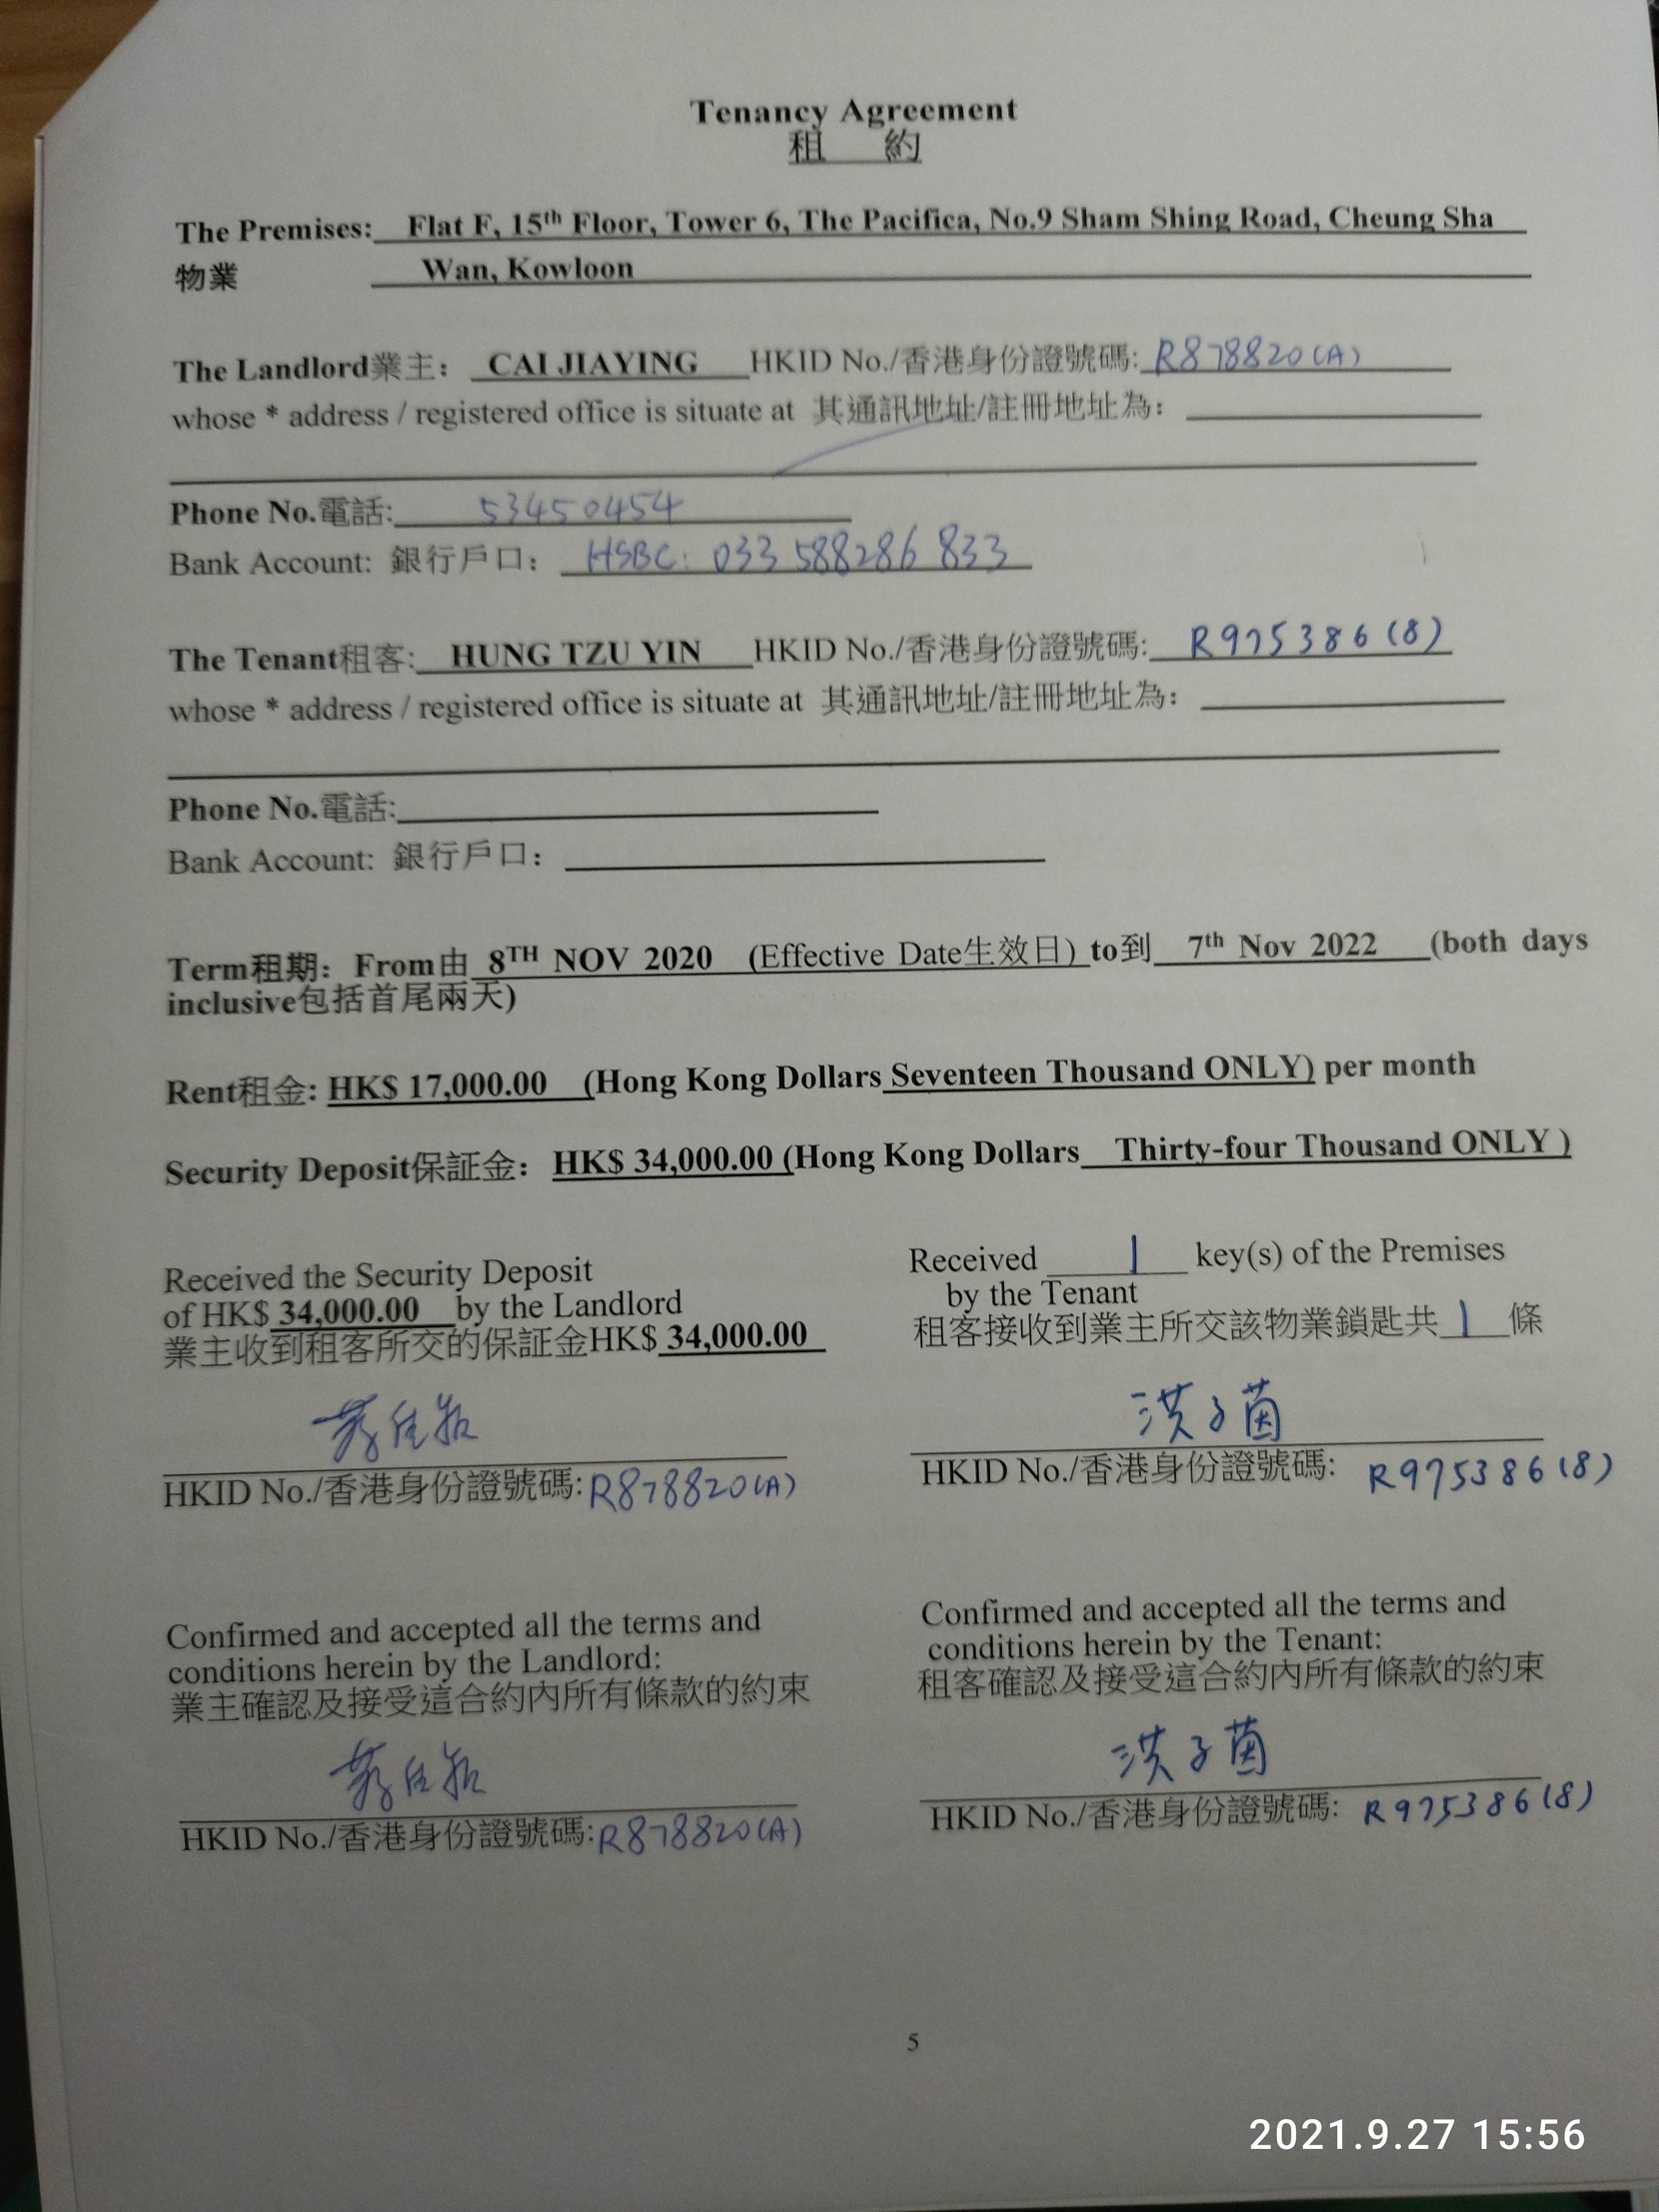 Tenancy Agreement
租 約
The Premises: Flat F, 15th Floor, Tower 6, The Pacifica, No.9 Sham Shing Road, Cheung Sha
物業 Wan, Kowloon
The Landlord業主: CAI JIAYING HKID No./香港身份證號碼: R878820(A)
whose * address / registered office is situate at 其通訊地址/註冊地址為:
Phone No.電話: 53450454
Bank Account: 銀行戶口: HSBC: 033 588286 833
The Tenant租客: HUNG TZU YIN HKID No./香港身份證號碼: R975386(8)
whose * address / registered office is situate at 其通訊地址/註冊地址為:
Phone No.電話:
Bank Account: 銀行戶口:
Term租期: From由 8TH NOV 2020 (Effective Date生效日) to到 7th Nov 2022 (both days
inclusive包括首尾兩天)
Rent租金: HK$ 17,000.00 (Hong Kong Dollars Seventeen Thousand ONLY) per month
Security Deposit保証金: HK$ 34,000.00 (Hong Kong Dollars Thirty-four Thousand ONLY )
Received the Security Deposit
of HK$ 34,000.00 by the Landlord
業主收到租客所交的保証金HK$ 34,000.00
HKID No./香港身份證號碼: R878820(A)
Received 1 key(s) of the Premises
by the Tenant
租客接收到業主所交該物業鎖匙共 1 條
洪子茵
HKID No./香港身份證號碼: R975386(8)
Confirmed and accepted all the terms and
conditions herein by the Landlord:
業主確認及接受這合約內所有條款的約束
HKID No./香港身份證號碼: R878820(A)
Confirmed and accepted all the terms and
conditions herein by the Tenant:
租客確認及接受這合約內所有條款的約束
洪子茵
HKID No./香港身份證號碼: R975386(8)
5
2021.9.27 15:56